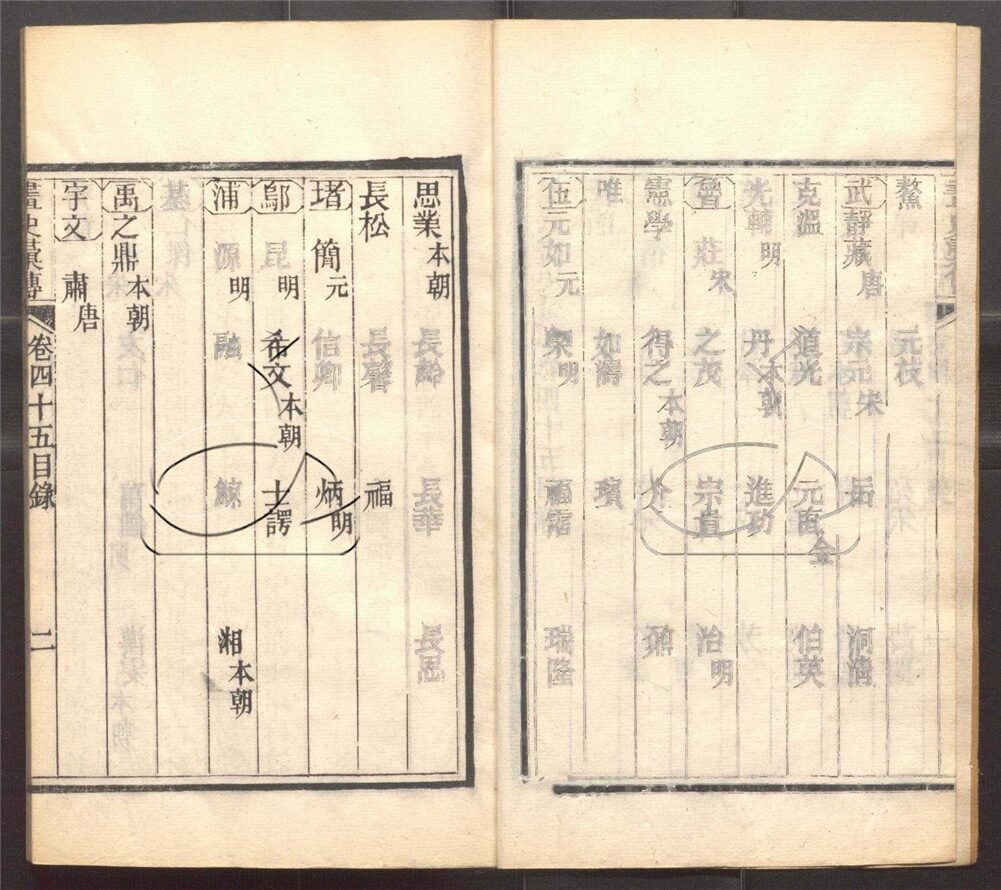 鰲 元枝
武靜藏唐 宗元宋 岳 洞清
克溫 道光 元直金 伯英
光輔明 丹本朝 進功
魯莊宋 之茂 宗貴 治明
憲學 得之本朝 介 鼐
唯 如濤 璸
伍元如元 榘明 福霑 瑞隆
思業本朝 長齡 長華 長恩
長松 長馨 福
堵簡元 信卿 炳明
鄔昆明 希文本朝 士諤
浦源明 融 鯨 湘本朝
禹之鼎本朝
宇文肅唐
畫史彙傳 卷四十五目錄 二